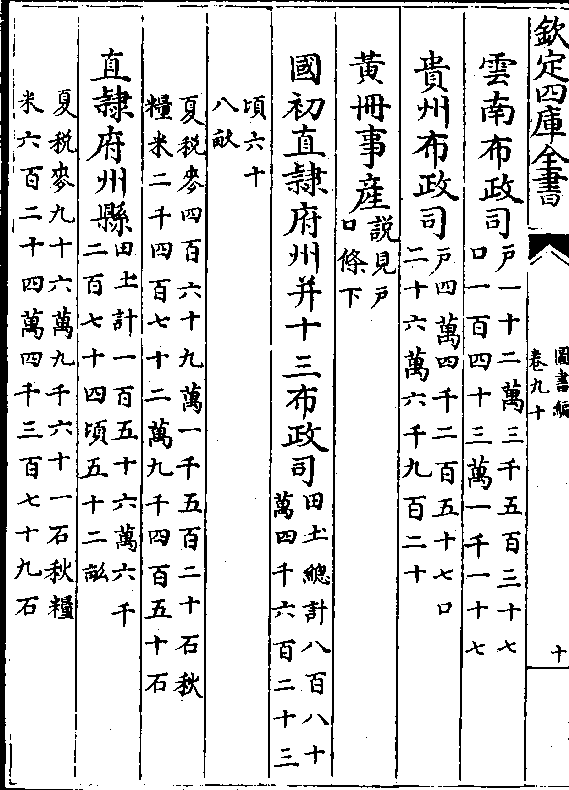 欽定四庫全書
圖書編
卷九十
十
雲南布政司戶一十二萬三千五百三十七
口一百四十三萬一千一十七
貴州布政司戶四萬四千二百五十七口
二十六萬六千九百二十
黃冊事產説見戶
口條下
國初直隸府州并十三布政司田土總計八百八十
萬四千六百二十三
頃六十
八畝
夏税麥四百六十九萬一千五百二十石秋
糧米二千四百七十二萬九千四百五十石
直隸府州縣田土計一百五十六萬六千
二百七十四頃五十二畝
夏税麥九十六萬九千六十一石秋糧
米六百二十四萬四千三百七十九石